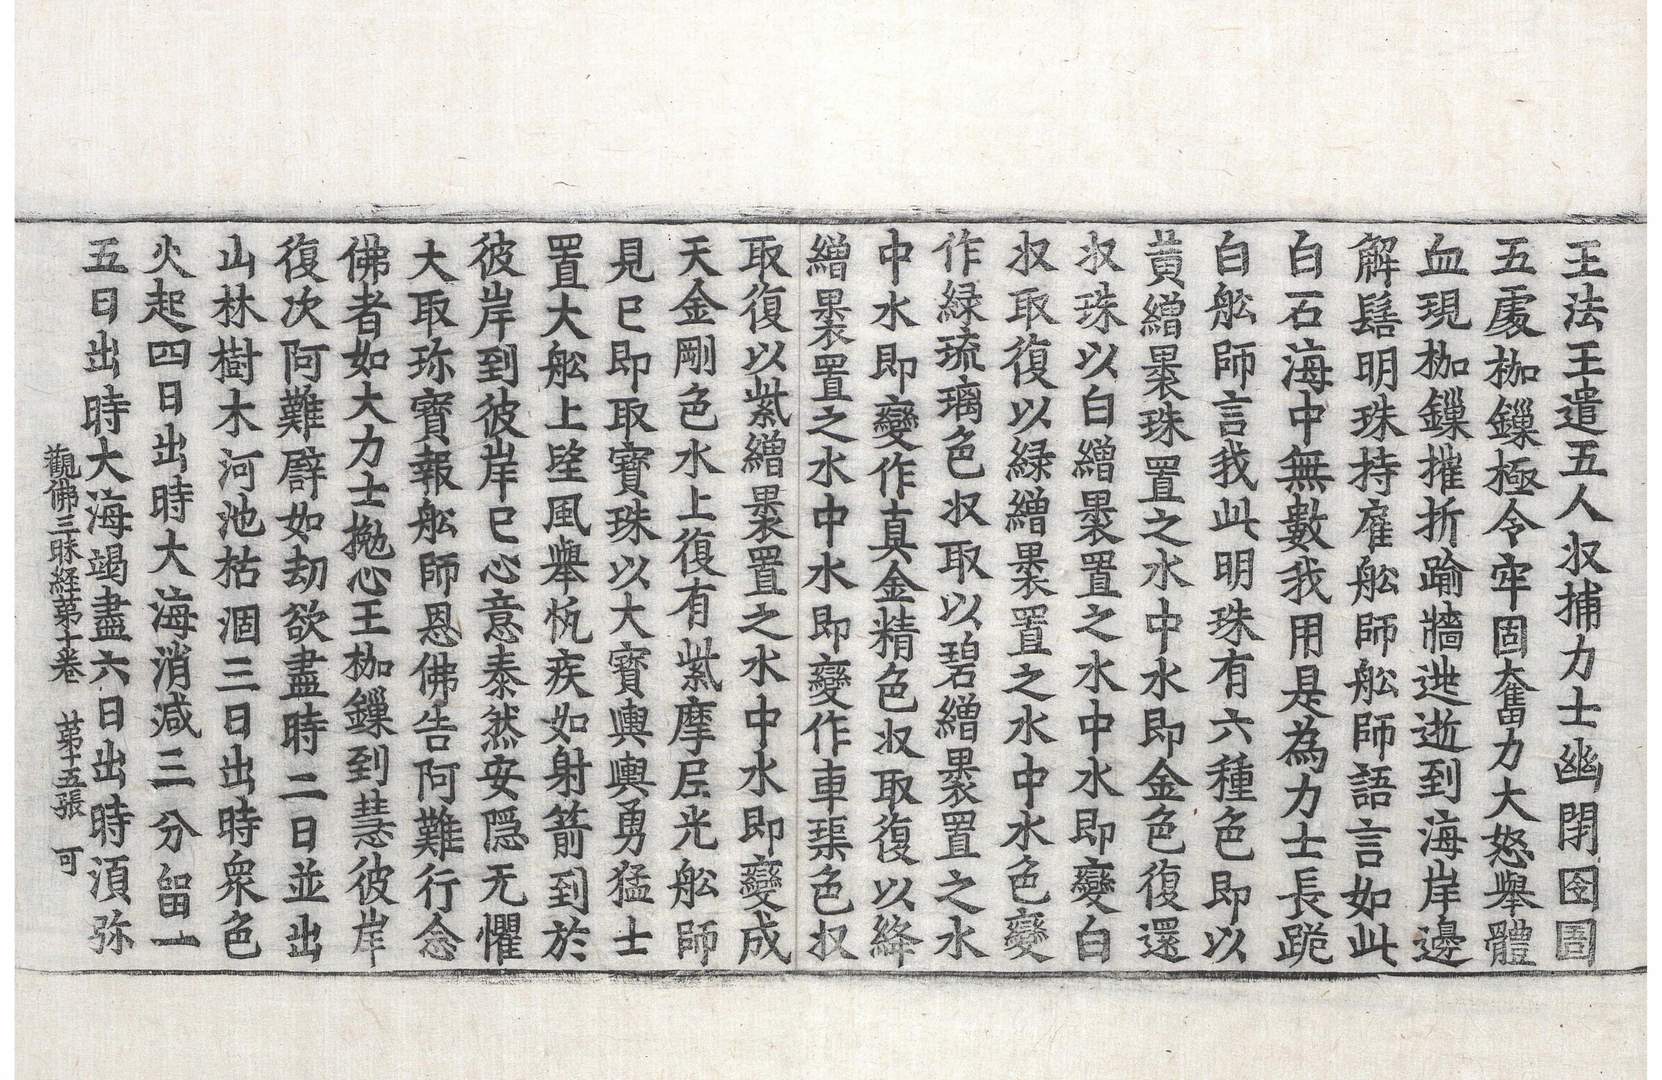 王法王遣五人收捕力士幽閉囹圄
五處枷鏁極令牢固奮力大怒舉體
血現枷鏁摧折踰牆逃逝到海岸邊
解髻明珠持雇舩師舩師語言如此
白石海中無數我用是為力士長跪
白舩師言我此明珠有六種色即以
黃繒裹珠置之水中水即金色復還
收珠以白繒裹置之水中水即變白
收取復以緑繒裹置之水中水色變
作緑琉璃色收取以碧繒裹置之水
中水即變作真金精色收取復以絳
繒裹置之水中水即變作車璖色收
取復以紫繒裹置之水中水即變成
天金剛色水上復有紫摩尼光舩師
見已即取寶珠以大寶輿輿勇猛士
置大舩上望風舉忼疾如射箭到於
彼岸到彼岸已心意泰然安隱无懼
大取珎寶報舩師恩佛告阿難行念
佛者如大力士挽心王枷鏁到慧彼岸
復次阿難譬如劫欲盡時二日並出
山林樹木河池枯涸三日出時眾色
火起四日出時大海消減三分留一
五日出時大海竭盡六日出時湏弥
觀佛三昧経苐十卷 苐十五張 可